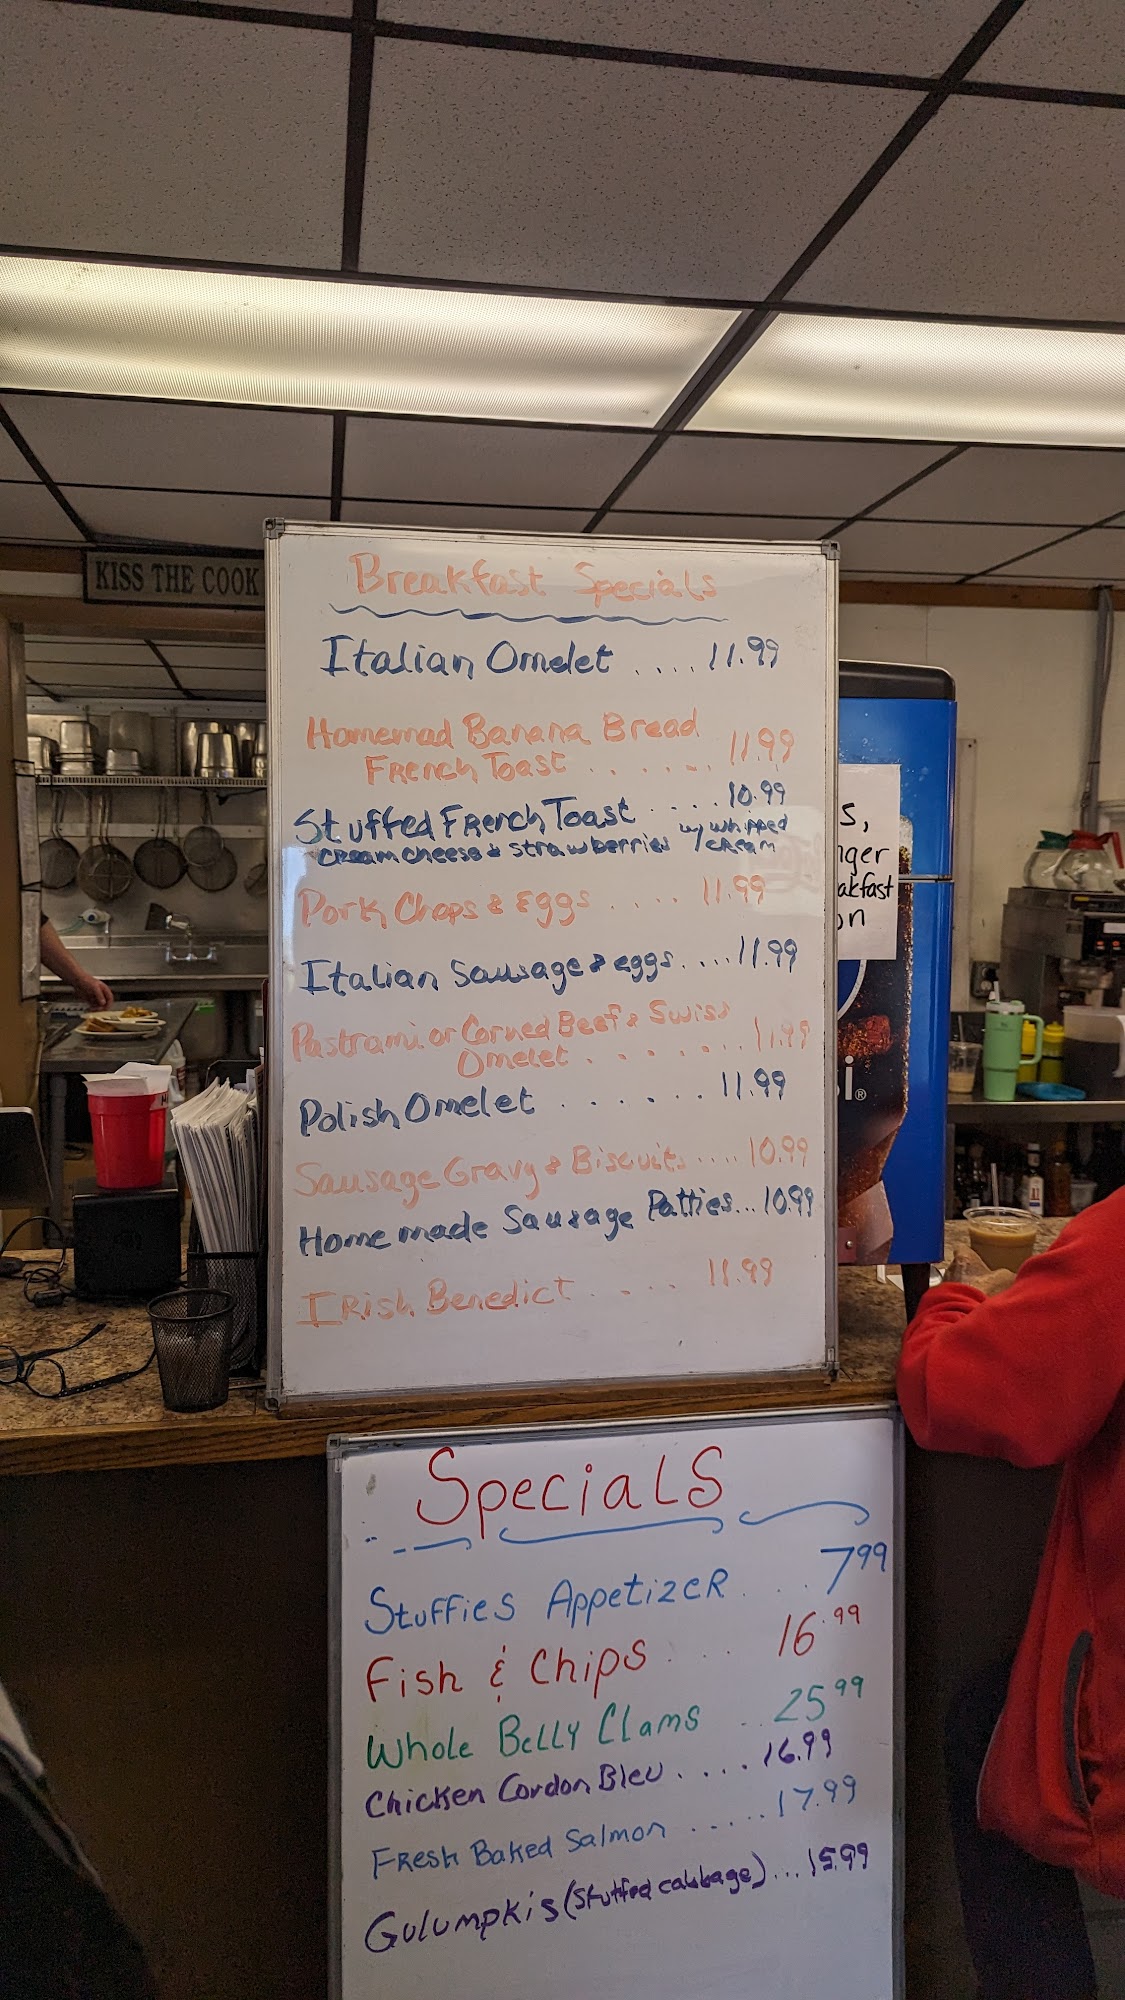 KISS THE COOK
Breakfast Specials
Italian Omelet .... 11.99
Homemad Banana Bread
French Toast ....... 11.99
Stuffed French Toast .... 10.99
cream cheese & strawberries w/ whipped
cream
Pork Chops & Eggs .... 11.99
Italian Sausage & eggs .... 11.99
Pastrami or Corned Beef & Swiss
Omelet ....... 11.99
Polish Omelet ...... 11.99
Sausage Gravy & Biscuits .... 10.99
Home made Sausage Patties... 10.99
Irish Benedict .... 11.99
s,
nger
akfast
on
si®
Specials
Stuffies Appetizer ... 7.99
Fish & Chips ... 16.99
Whole Belly Clams .. 25.99
Chicken Cordon Bleu .... 16.99
Fresh Baked Salmon ..... 17.99
Gulumpkis (stuffed cabbage) ... 15.99